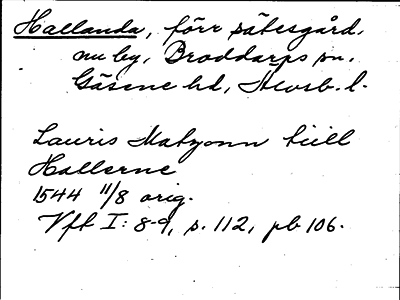 Hallanda, förr sätesgård,
nu by, Broddarps sn,
Gäsene hd, Älvsb. l.
Lauris Matzonn tiill
Hallerne
1544 11/8 orig.
Vft I: 8-9, s. 112, pb 106.